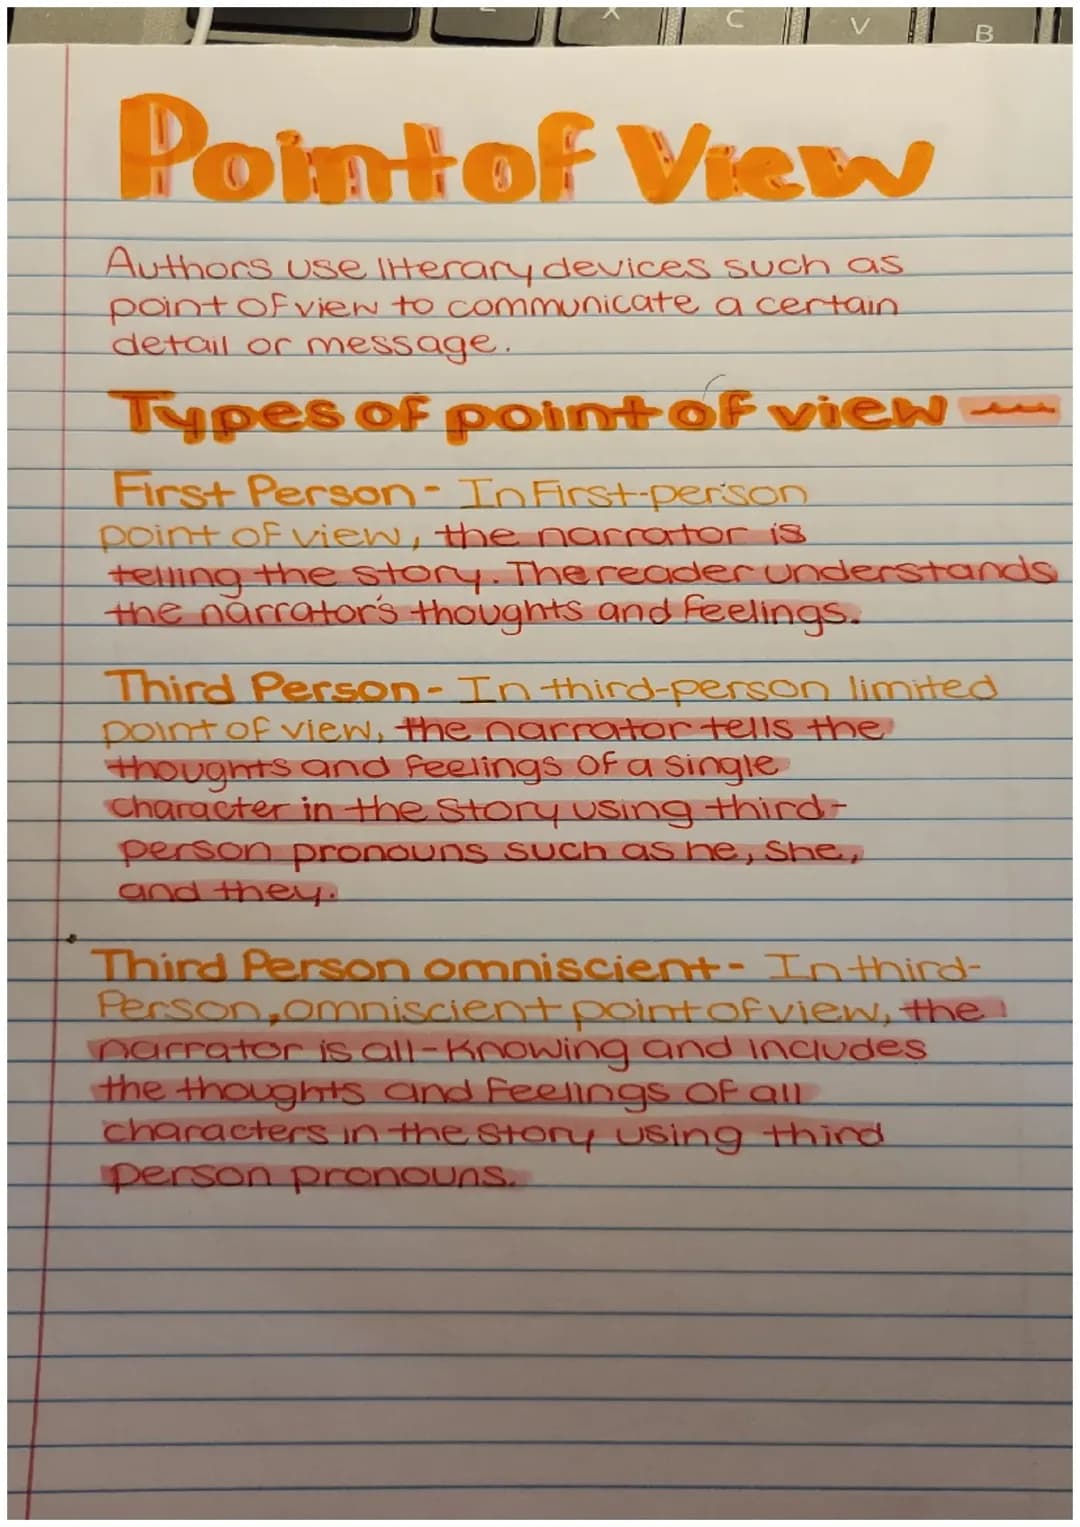 X C V B
Point of View
Authors use literary devices such as
point of view to communicate a certain
detail or message.
Types of point of view
First Person - In First-person
point of view, the narrator is
telling the story. The reader understands
the narrator's thoughts and feelings.
Third Person - In third-person limited
point of view, the narrator tells the
thoughts and feelings of a single
character in the story using third-
person pronouns such as he, she,
and they.
Third Person omniscient - In third-
Person, omniscient point of view, the
narrator is all-knowing and includes
the thoughts and feelings of all
characters in the story using third
person pronouns.